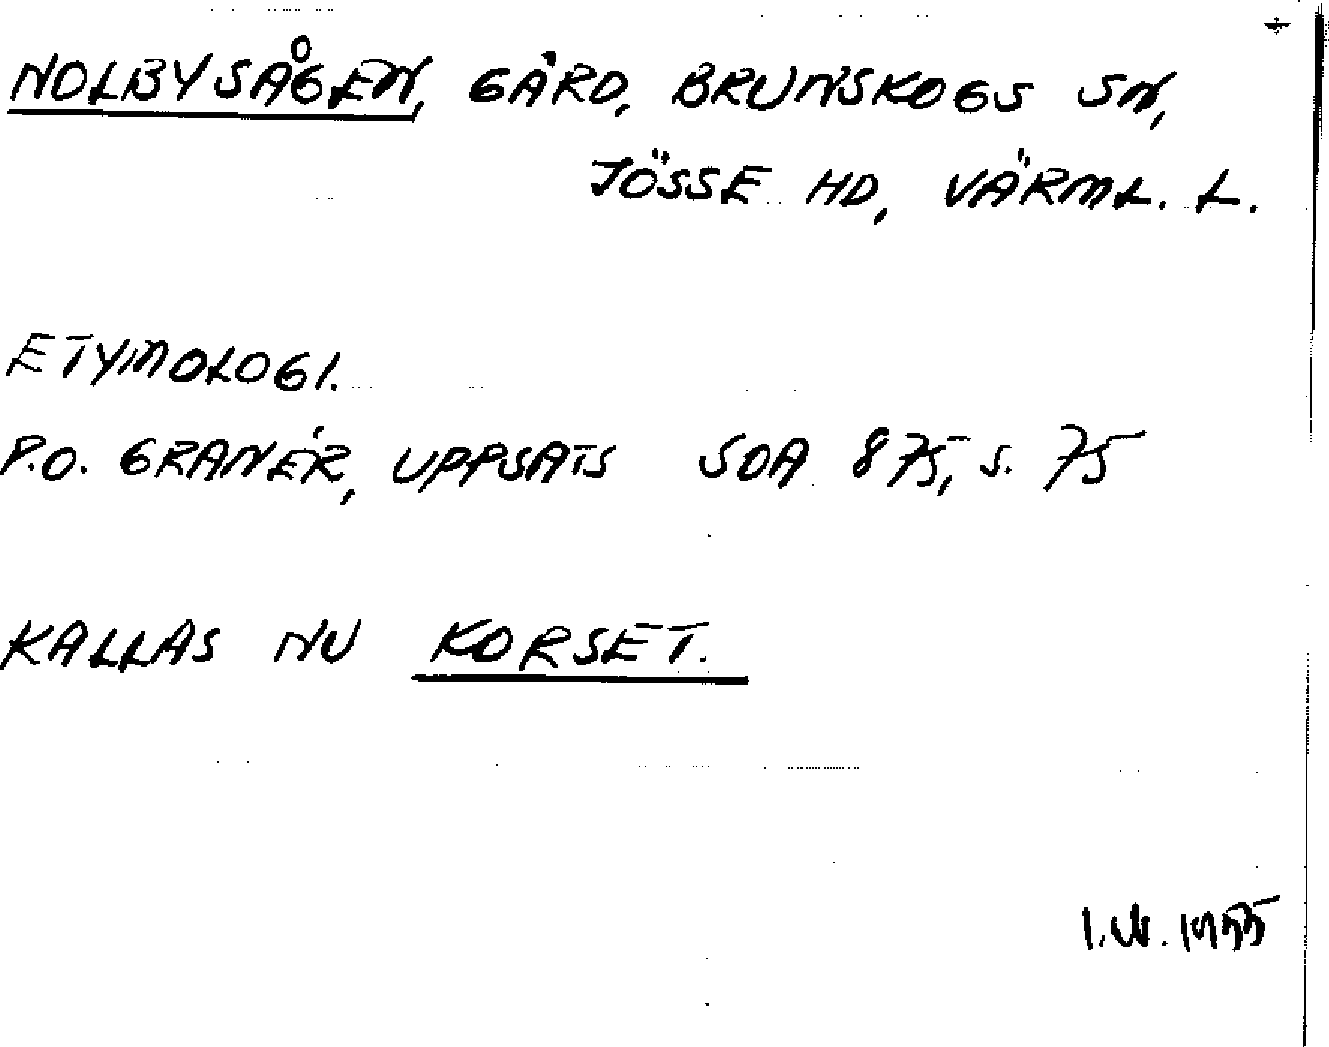 NOLBYSÅGEN, GÅRD, BRUNSKOGS SN,
JÖSSE HD, VÄRML. L.
ETYMOLOGI.
P.O. GRANÉR, UPPSATS SOA 875, S. 75
KALLAS NU KORSET.
1955